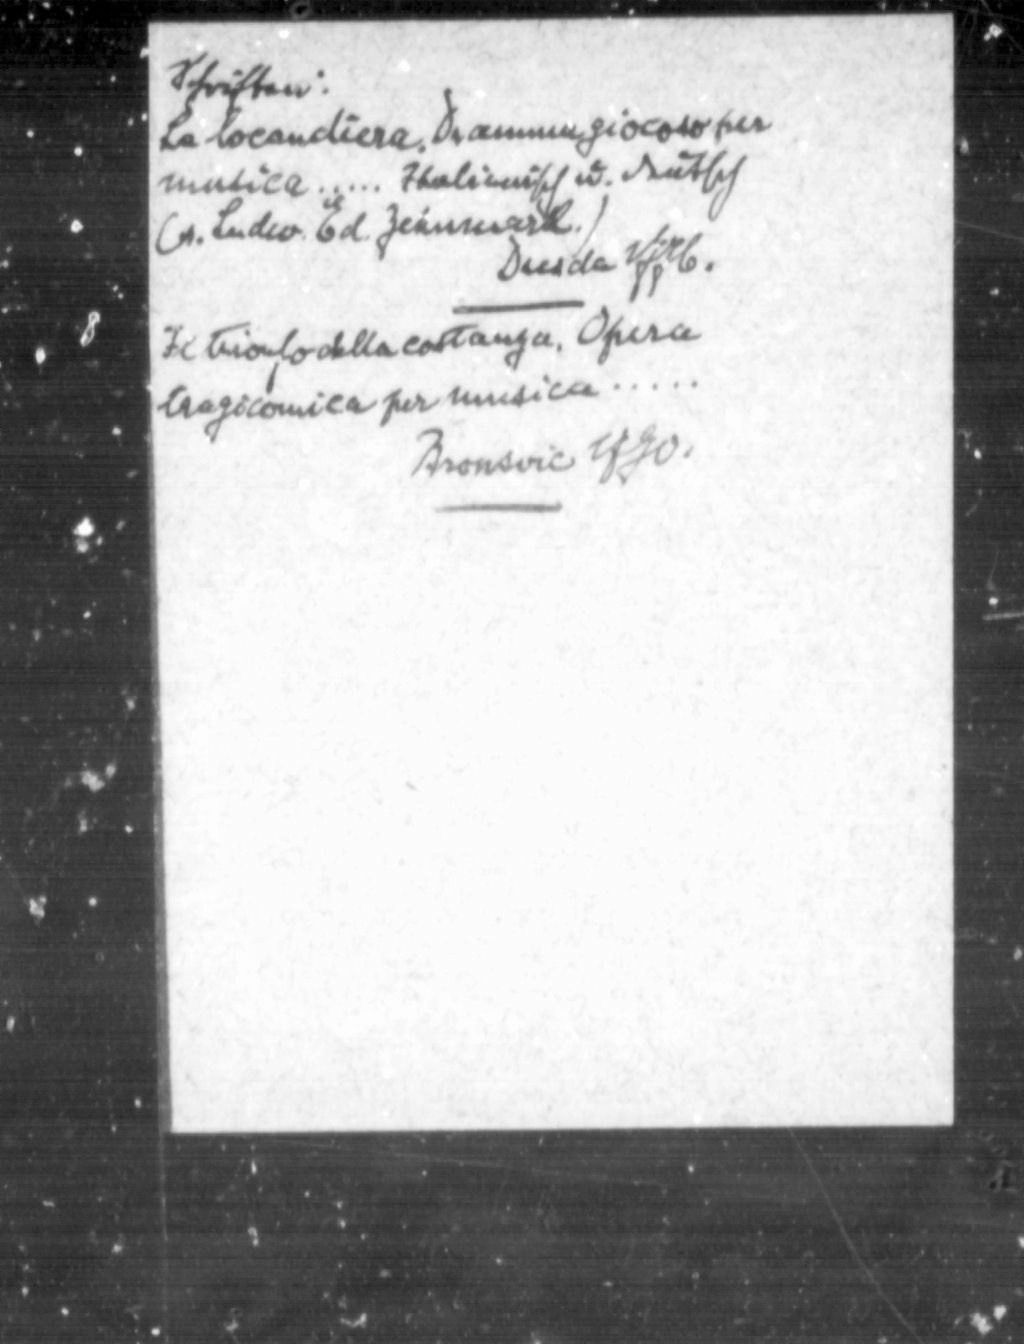 Schriften:
La locandiera. Dramma giocoso per
musica ..... Italienisch u. deutsch
(s. Ludw. Ed.
Dresda
Il trionfo della costanza. Opera
tragicomica per musica .....
Bronsvic 1790.